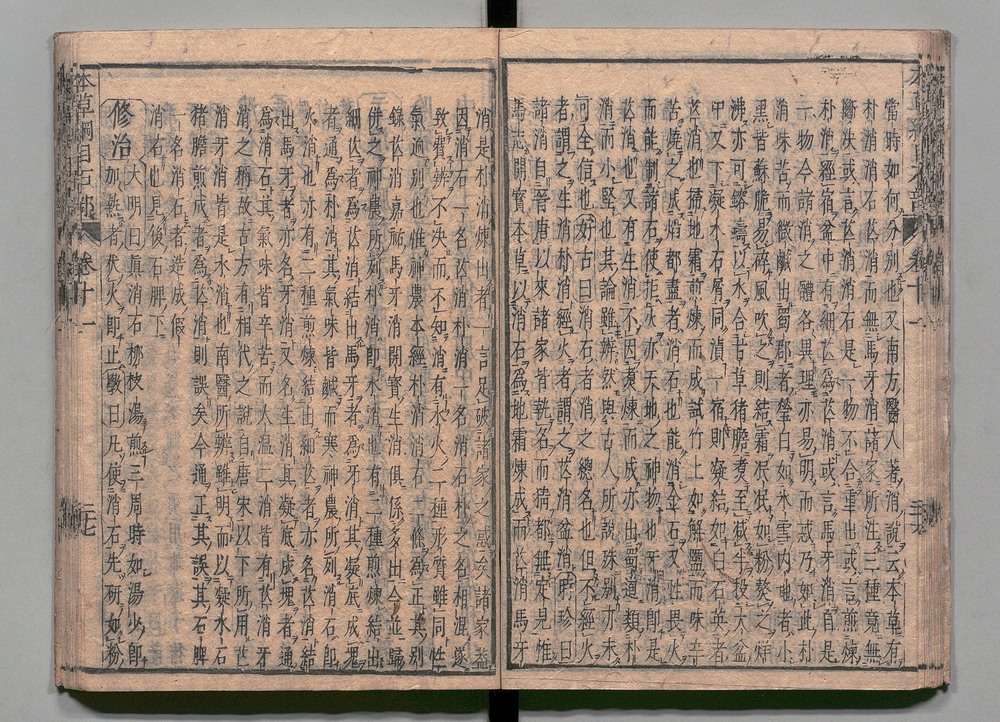 當時如何分別也又南方醫人著消說云本草有
朴消消石芒消而無馬牙消諸家所注三種竟無
斷決或言芒消消石是一物不合重出或言煎煉
朴消經宿盆中有細芒爲芒消或言馬牙消自是
一物今諸消之體各異理亦易明而惑乃如此朴
消味苦而微鹹出蜀郡者瑩白如氷雪內地者小
黑皆蘇脆易碎風吹之則結霜泯泯如粉熬之烊
沸亦可鎔鑄以水合甘草猪膽煮至減半投大盆
中又下凝水石屑同漬一宿則凝結如白石英者
芒消也掃地霜煎煉而成試竹上如解鹽而味辛
苦燒之成焰都盡者消石也能消金石又性畏火
而能制諸石使拒火亦天地之神物也牙消即是
芒消也又有生消不因煮煉而成亦出蜀道類朴
消而小堅也其論雖辨然與古人所說殊別亦未
可全信也好古曰消石者消之總名也但不經火
者謂之生消朴消經火者謂之芒消盆消時珍曰
諸消自晉唐以來諸家皆執名而猜都無定見惟
馬志開寶本草以消石爲地霜煉成而芒消馬牙
消是朴消煉出者一言足破諸家之惑矣諸家蓋
因消石一名芒消朴消一名消石朴之名相混遂
致費辨不決而不知消有水火二種形質雖同性
氣逈別也惟神農本經朴消消石二條爲正其別
錄芒消嘉祐馬牙消開寶生消俱係多出今並歸
倂之神農所列朴消即水消也有二種煎煉結出
細芒者爲芒消結出馬牙者爲牙消其凝底成塊
者通爲朴消其氣味皆鹹而寒神農所列消石即
火消也亦有二種煎煉結出細芒者亦名芒消結
出馬牙者亦名牙消又名生消其凝底成塊者通
爲消石其氣味皆辛苦而大溫二消皆有芒消牙
消之稱故古方有相代之說自唐宋以下所用芒
消牙消皆是水消也南醫所辨雖明而以凝水石
猪膽煎成者爲芒消則誤矣今通正其誤其石脾
一名消石者造成假
消石也見後石脾下
修治大明曰眞消石柳枝湯煎三周時如湯少即
加熱者伏火即止斅曰凡使消石先研如粉
本草綱目石部
卷十一